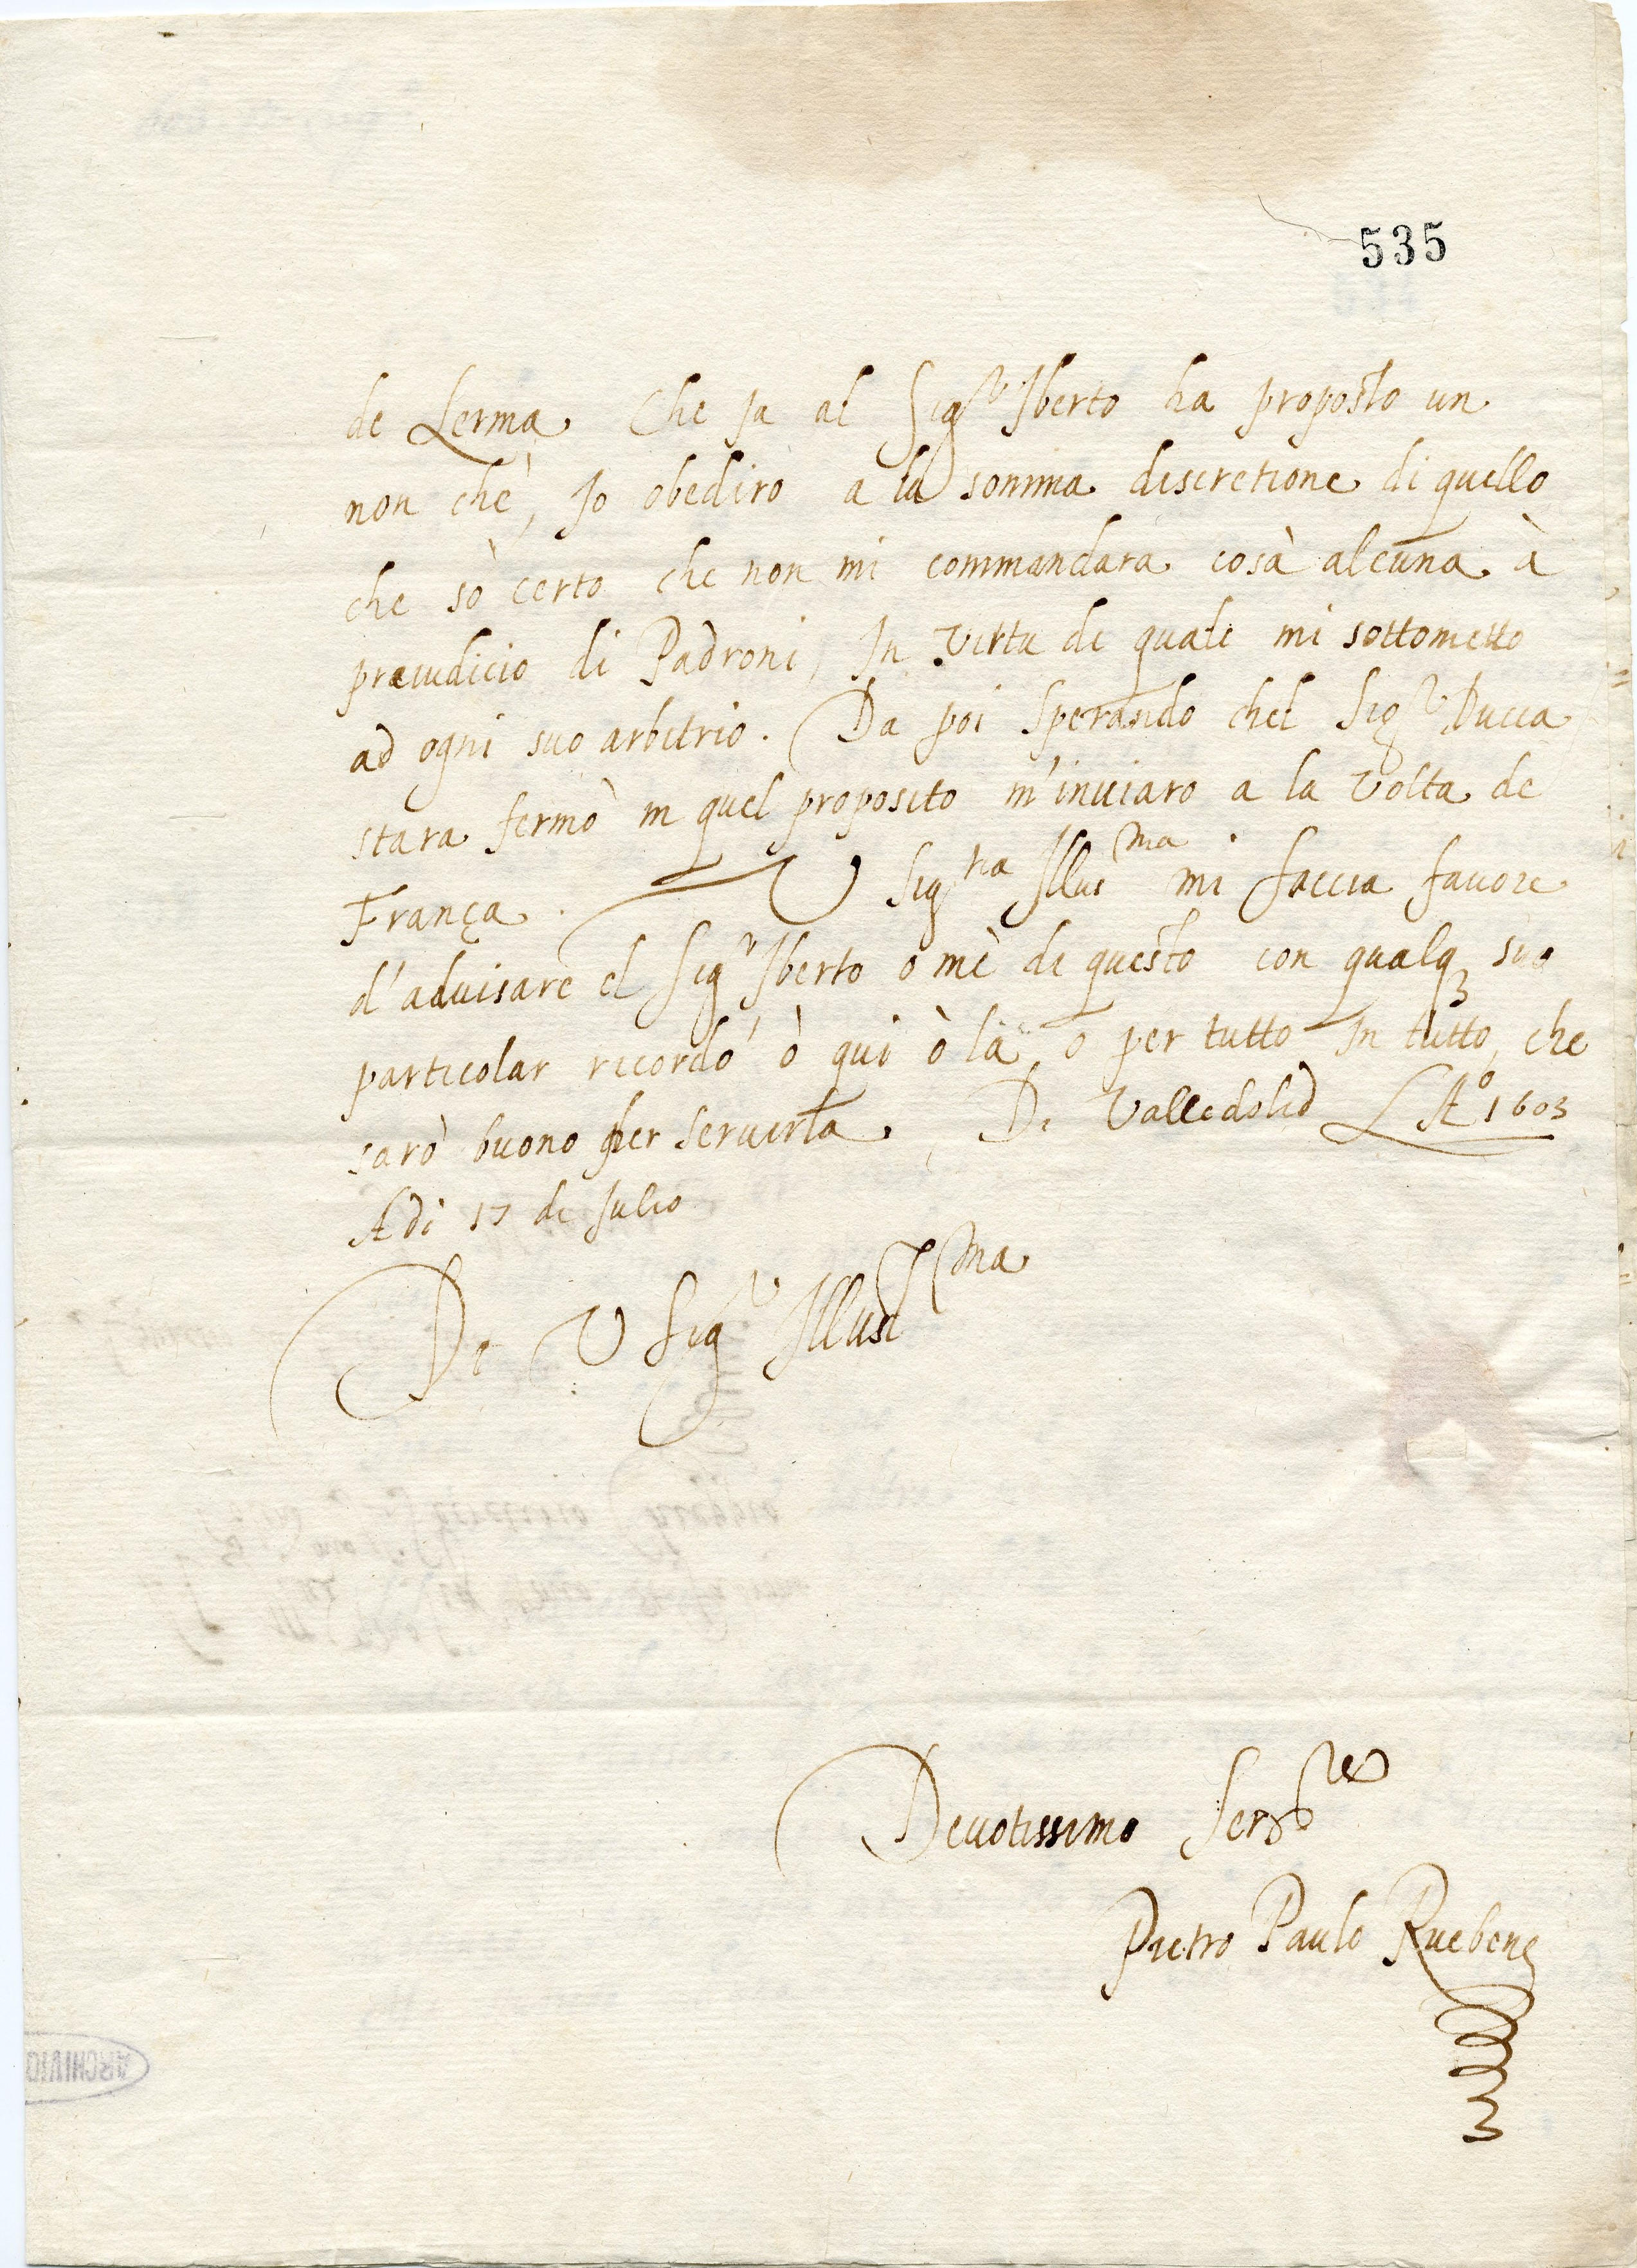 535
de Lerma che ja al Sig.r Iberto ha proposto un
non che, Io obedirò a la somma discretione di quello
che sò certo che non mi commandara cosà alcuna à
preiudicio di Padroni, In virtu de quale mi sottometto
ad ogni suo arbitrio. Da poi Sperando chel Sig.r Ducca
stara fermo in quel proposito m'inuiaro a la volta de
França. V Sig.ria Illus.ma mi faccia fauore
d'aduisare el Sig.r Iberto o mè de questo con qualq3 suo
particolar ricordo ò qui ò là o per tutto In tutto, che
sarò buono per seruirla, Di Valledolid L'A.o 1603
Adi 17 de Julio
Di V Sig.r Illus.ma
Deuotissimo Ser.re
Pietro Paulo Ruebens
ARCHIVIO